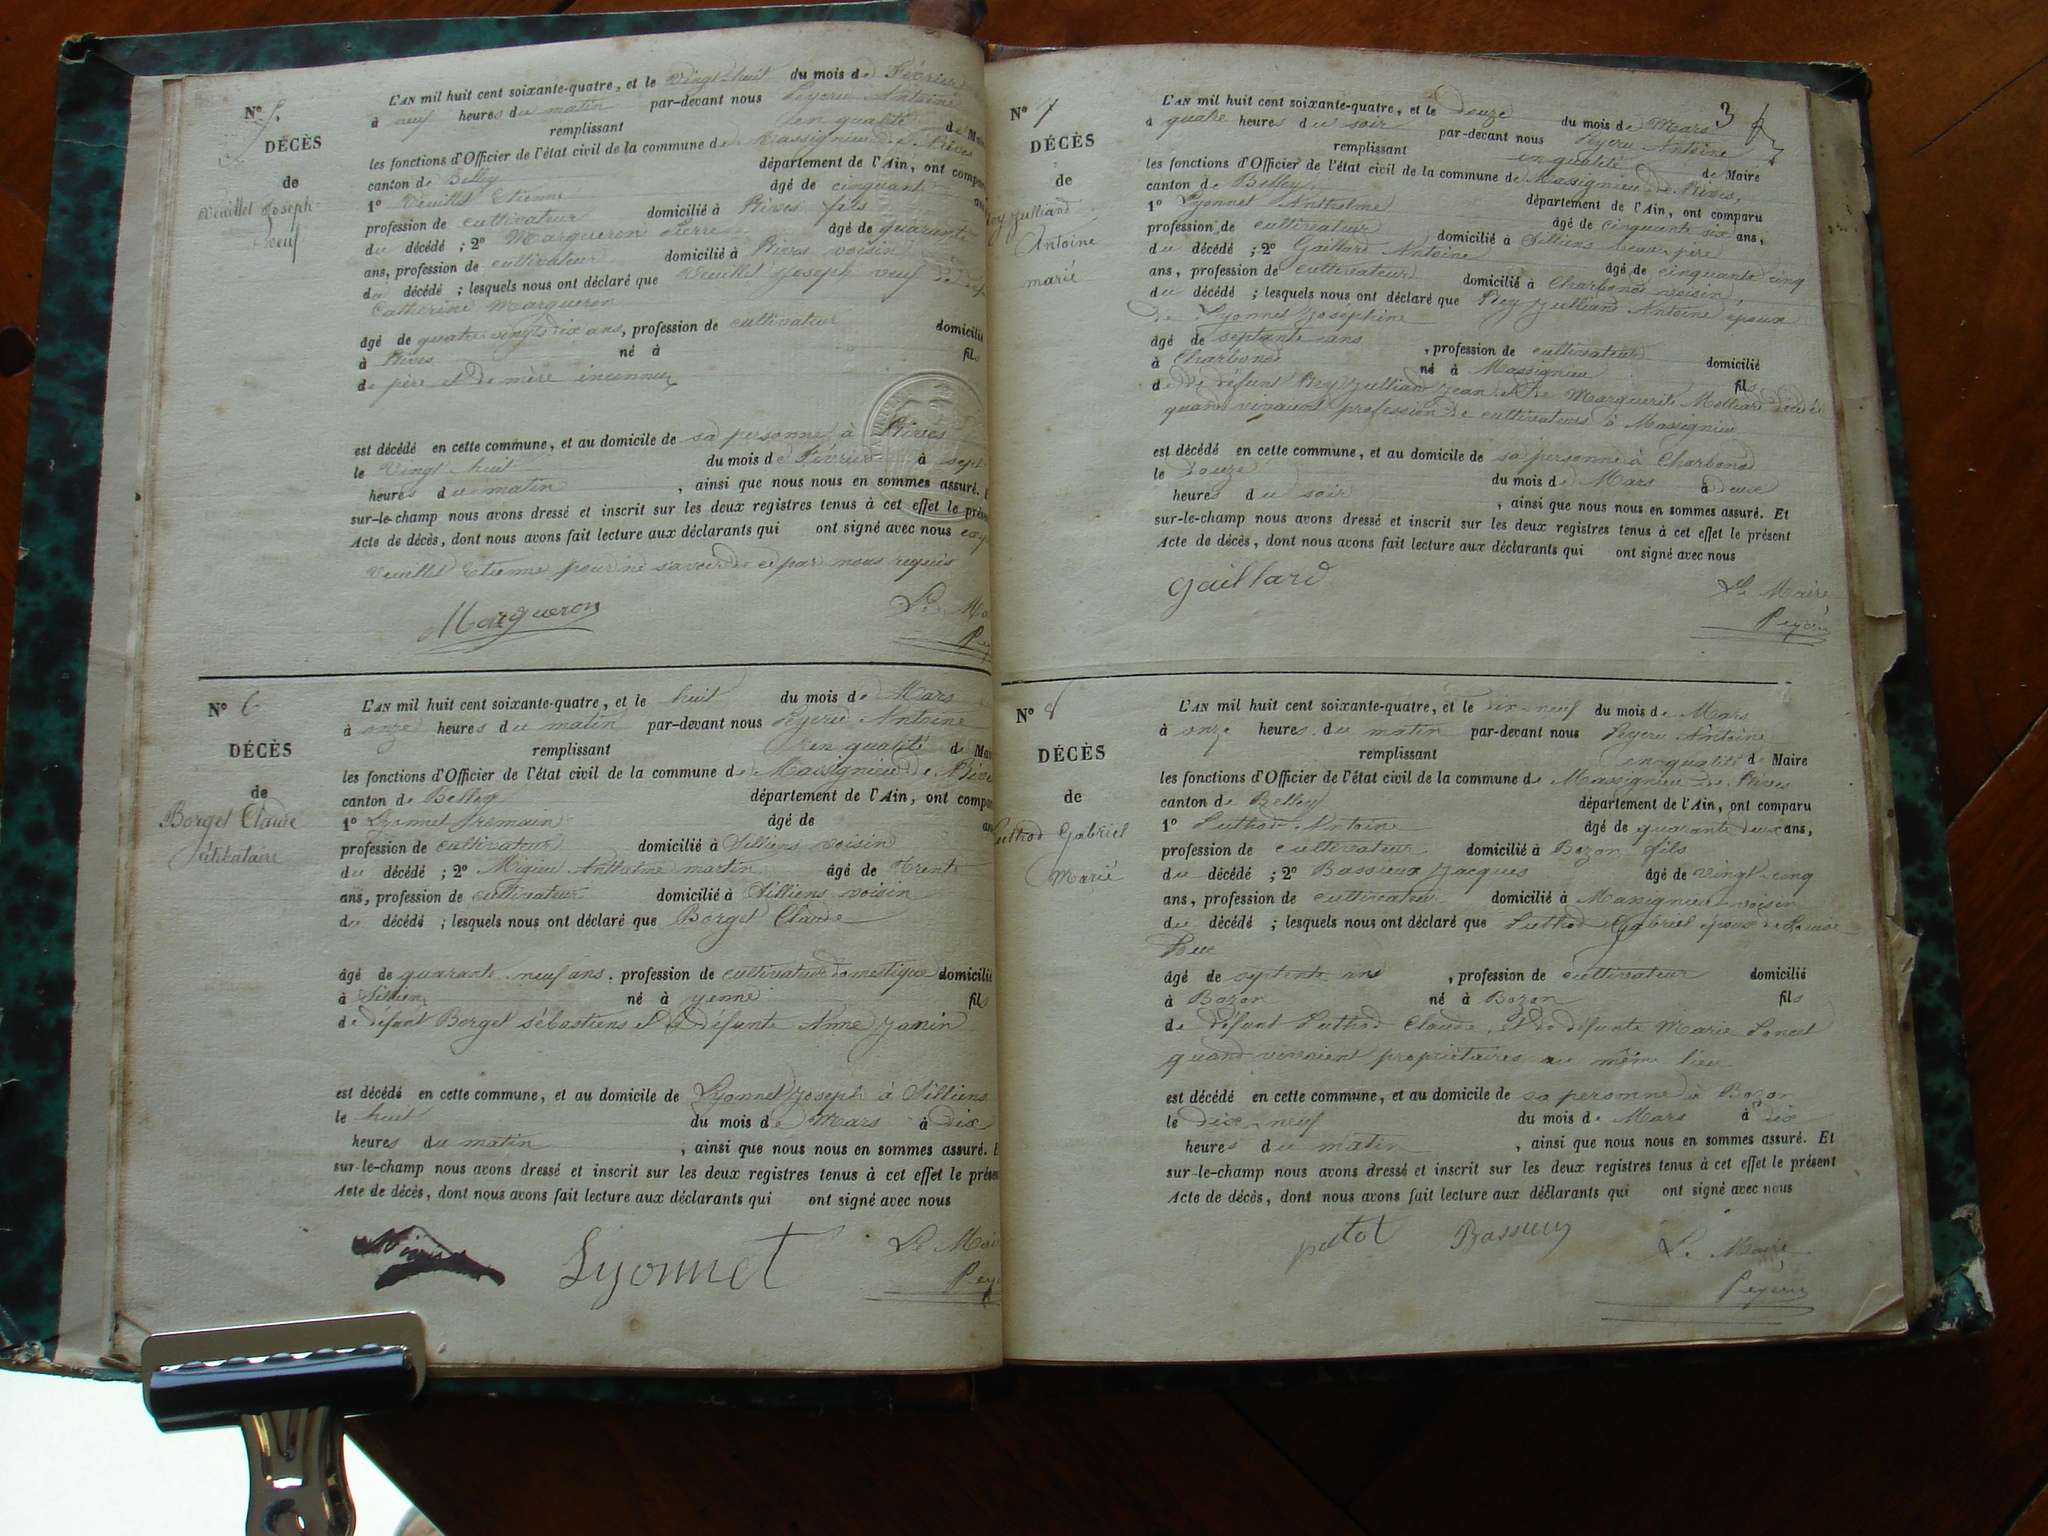 N° 5.
DÉCÈS
de
Veuillet Joseph
Veuf
L'AN mil huit cent soixante-quatre, et le vingt huit du mois de Février
à neuf heures du matin par-devant nous Peyeru Antoine
remplissant en qualité de Maire
les fonctions d'Officier de l'état civil de la commune de Massignieu de Rives
canton de Belley département de l'Ain, ont compa
1° Veuillet Etienne âgé de cinquante
profession de cultivateur domicilié à Rives fils
du décédé ; 2° Margueron Pierre âgé de quarante
ans, profession de cultivateur domicilié à Rives voisin
du décédé ; lesquels nous ont déclaré que Veuillet Joseph veuf de
Catherine Margueron
âgé de quatre vingt dix ans, profession de cultivateur domicilié
à Rives né à fils
de père et de mère inconnus
est décédé en cette commune, et au domicile de sa personne à Rives
le vingt huit du mois de Février à sept
heures du matin , ainsi que nous nous en sommes assuré. E
sur-le-champ nous avons dressé et inscrit sur les deux registres tenus à cet effet le prése
Acte de décès, dont nous avons fait lecture aux déclarants qui ont signé avec nous
Veuillet Etienne pour ne savoir de ce par nous requis
Margueron
Le Ma
Pey
N° 6
DÉCÈS
de
Borget Claude
célibataire
L'AN mil huit cent soixante-quatre, et le huit du mois de Mars
à onze heures du matin par-devant nous Peyeru Antoine
remplissant en qualité de Mai
les fonctions d'Officier de l'état civil de la commune de Massignieu de Rives
canton de Belley département de l'Ain, ont compa
1° Lyonnet Germain âgé de an
profession de cultivateur domicilié à Silliens voisin
du décédé ; 2° Migieu Anthelme martin âgé de trente
ans, profession de cultivateur domicilié à Silliens voisin
du décédé ; lesquels nous ont déclaré que Borget Claude
âgé de quarante neuf ans, profession de cultivateur domestique domicilié
à Sillien né à yenne fils
de défunt Borget sébastiens et de défunte Anne Janin
est décédé en cette commune, et au domicile de Lyonnet Joseph à Silliens
le huit du mois de Mars à dix
heures du matin , ainsi que nous nous en sommes assuré. E
sur-le-champ nous avons dressé et inscrit sur les deux registres tenus à cet effet le présen
Acte de décès, dont nous avons fait lecture aux déclarants qui ont signé avec nous
Lyonnet
Le Mai
Peye
3
N° 7
DÉCÈS
de
ey Julliand
Antoine
marié
L'AN mil huit cent soixante-quatre, et le douze du mois de Mars
à quatre heures du soir par-devant nous Peyeru Antoine
remplissant en qualité de Maire
les fonctions d'Officier de l'état civil de la commune de Massignieu de Rives,
canton de Belley département de l'Ain, ont comparu
1° Lyonnet Anthelme âgé de cinquante six ans,
profession de cultivateur domicilié à Silliens beau-père
du décédé ; 2° Gaillard Antoine âgé de cinquante cinq
ans, profession de cultivateur domicilié à Charbonod voisin
du décédé ; lesquels nous ont déclaré que Rey Julliand Antoine époux
de Lyonnet Joséphine
âgé de septante ans , profession de cultivateur domicilié
à Charbonod né à Massignieu fils
de défunt Rey Julliand Jean et de Marguerite Molliard
quand vivaient profession de cultivateurs à Massignieu
est décédé en cette commune, et au domicile de sa personne à Charbonod
le douze du mois de Mars à deux
heures du soir , ainsi que nous nous en sommes assuré. Et
sur-le-champ nous avons dressé et inscrit sur les deux registres tenus à cet effet le présent
Acte de décès, dont nous avons fait lecture aux déclarants qui ont signé avec nous
gaillard
Le Maire
Peyeru
N° 8
DÉCÈS
de
Luthod Gabriel
Marié
L'AN mil huit cent soixante-quatre, et le dix-neuf du mois de Mars
à onze heures du matin par-devant nous Peyeru Antoine
remplissant en qualité de Maire
les fonctions d'Officier de l'état civil de la commune de Massignieu de Rives
canton de Belley département de l'Ain, ont comparu
1° Luthod Antoine âgé de quarante deux ans,
profession de cultivateur domicilié à Bozon fils
du décédé ; 2° Bassieux Jacques âgé de vingt-cinq
ans, profession de cultivateur domicilié à Massignieu voisin
du décédé ; lesquels nous ont déclaré que Luthod Gabriel époux de Louise
âgé de septente ans , profession de cultivateur domicilié
à Bozon né à Bozon fils
de défunt Luthod Claude, et de défunte Marie
quand vivaient propriétaires au même lieu
est décédé en cette commune, et au domicile de sa personne à Bozon
le dix-neuf du mois de Mars à dix
heures du matin , ainsi que nous nous en sommes assuré. Et
sur-le-champ nous avons dressé et inscrit sur les deux registres tenus à cet effet le présent
Acte de décès, dont nous avons fait lecture aux déclarants qui ont signé avec nous
Le Maire
Peyeru